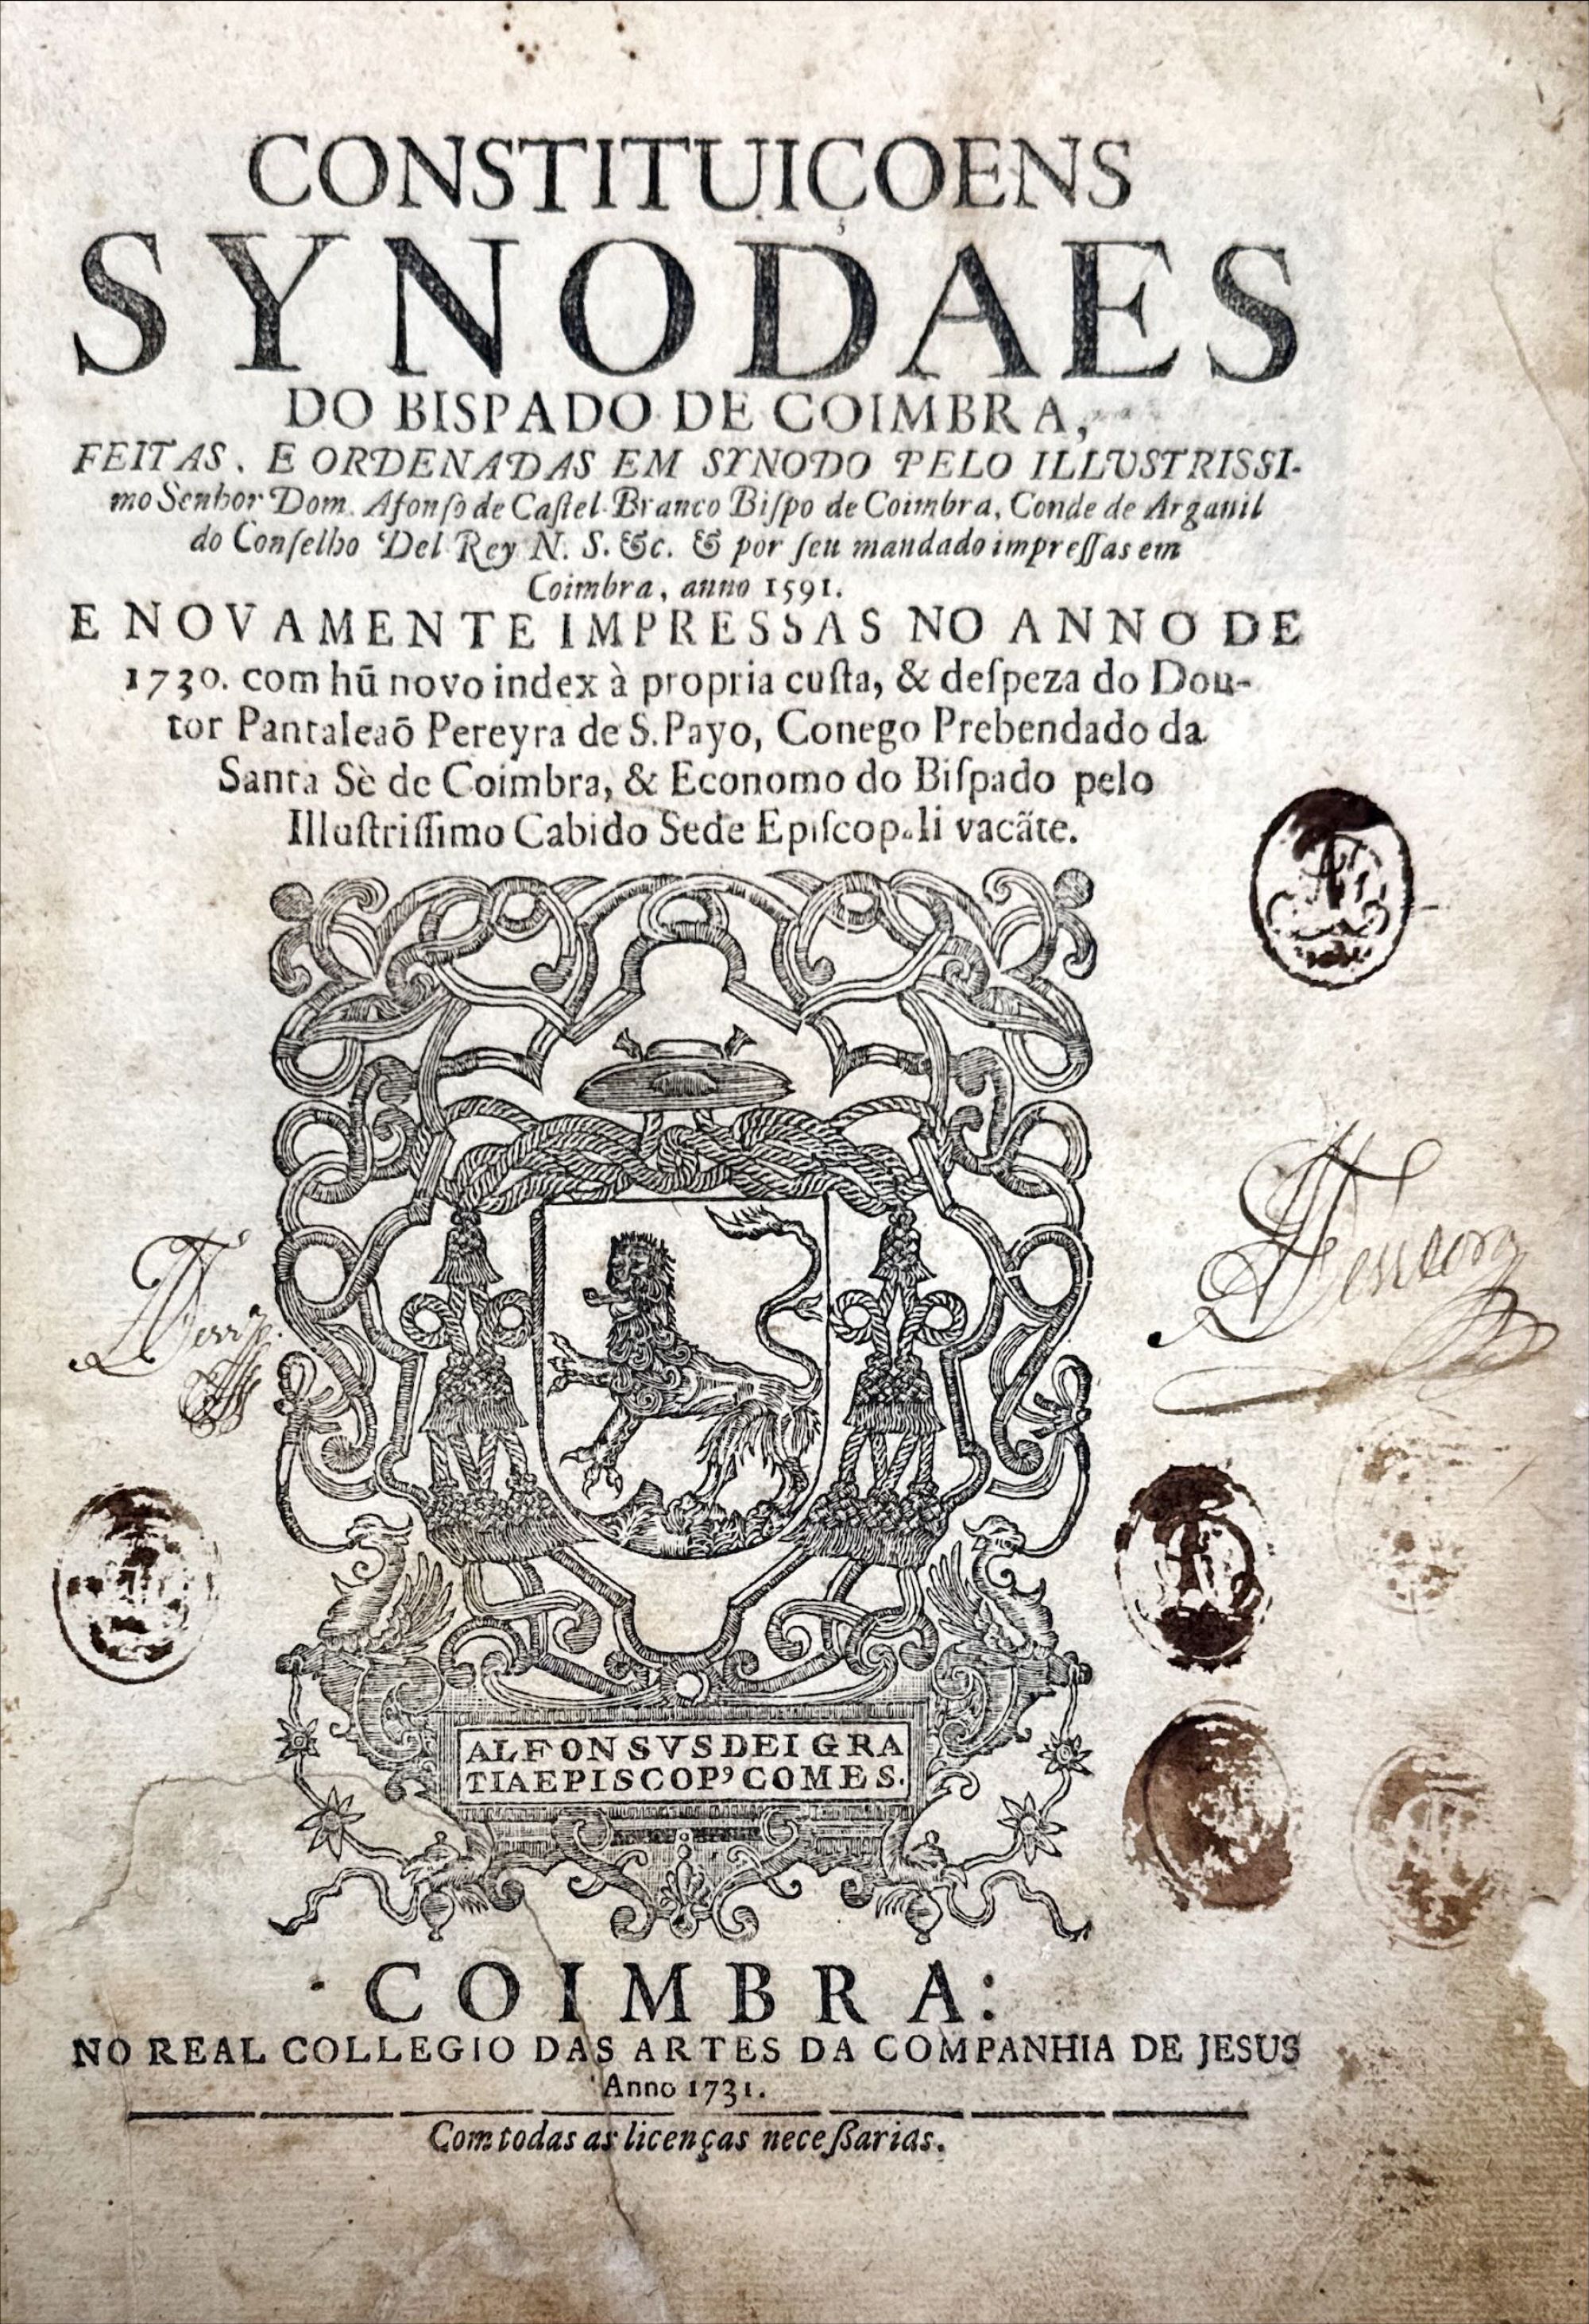 CONSTITUIÇOENS
SYNODAES
DO BISPADO DE COIMBRA,
FEITAS, E ORDENADAS EM SYNODO PELO ILLUSTRISSI-
mo Senhor Dom. Afonſo de Caſtel-Branco Biſpo de Coimbra, Conde de Arganil
do Conſelho Del Rey N. S. &c. & por ſeu mandado impreſſas em
Coimbra, anno 1591.
E NOVAMENTE IMPRESSAS NO ANNO DE
1730. com hũ novo index à propria cuſta, & deſpeza do Dou-
tor Pantaleaõ Pereyra de S. Payo, Conego Prebendado da
Santa Sè de Coimbra, & Economo do Biſpado pelo
Illuſtriſſimo Cabido Sede Epiſcopali vacãte.
ALFONSVS DEI GRA
TIA EPISCOP' COMES.
COIMBRA:
NO REAL COLLEGIO DAS ARTES DA COMPANHIA DE JESUS
Anno 1731.
Com todas as licenças neceſſarias.